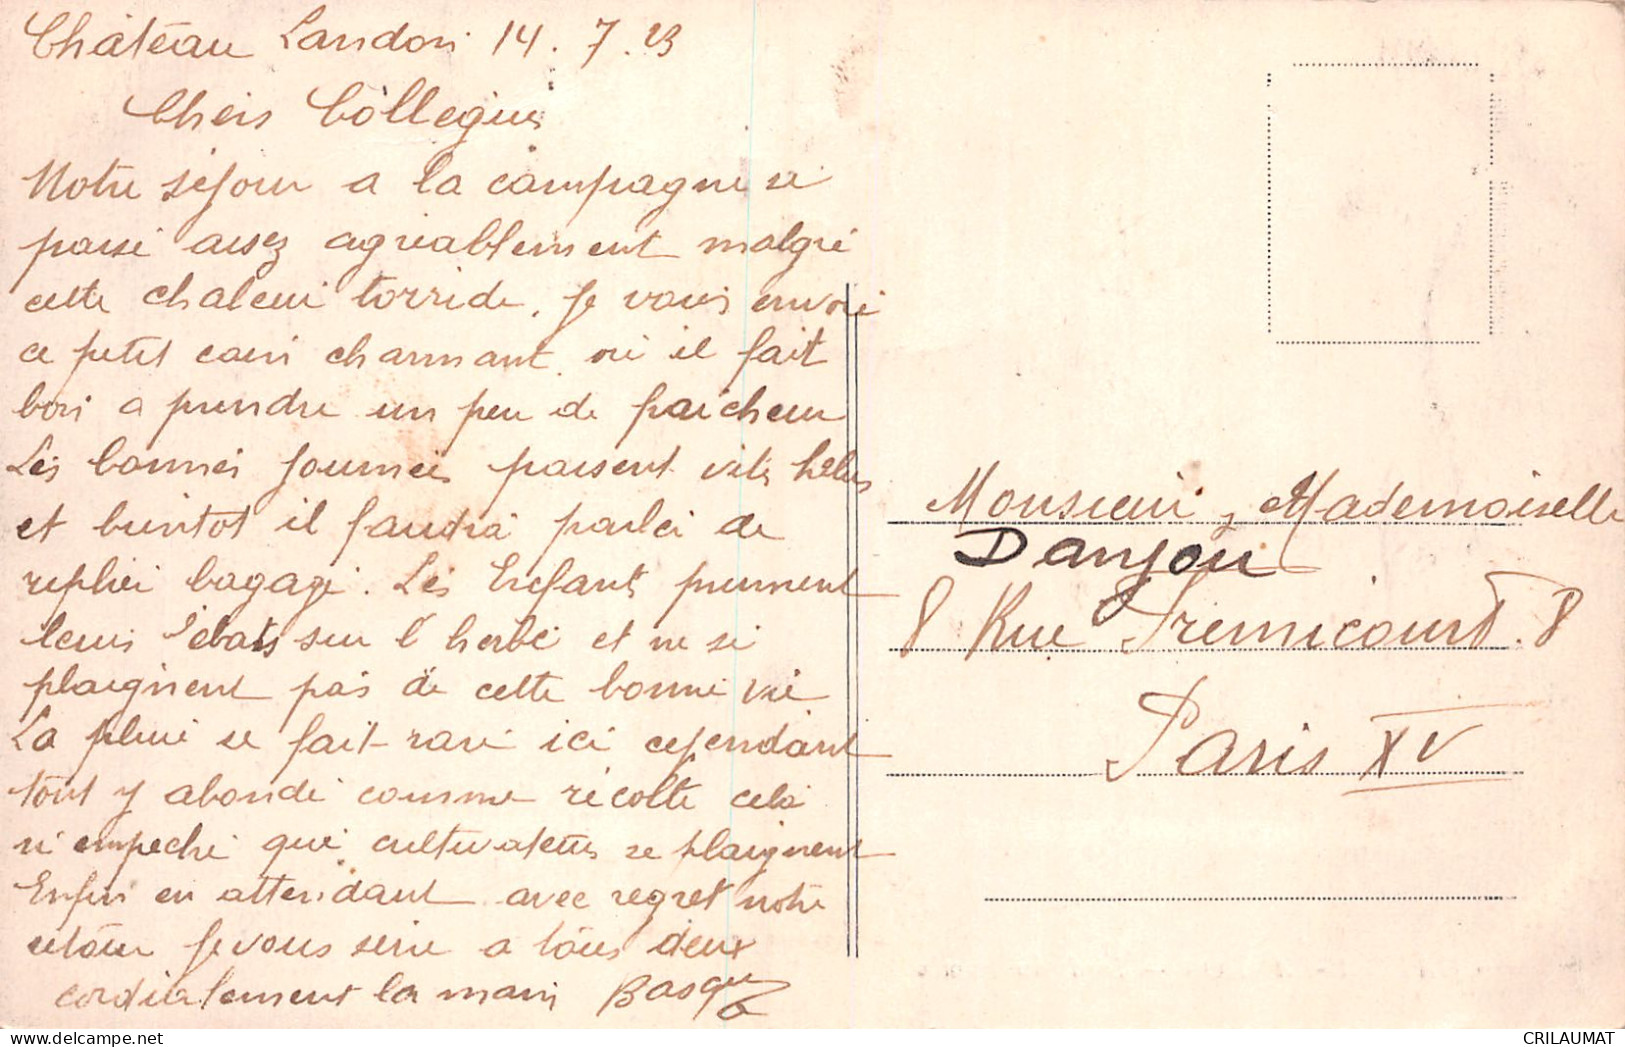 Château Landon 14. 7. 23
Chers Collegues
Notre séjour a la campagne se
passe assez agréablement malgré
cette chaleur torride, Je vous envoie
ce petit coin charmant ou il fait
bon a prendre un peu de fraicheur
Les bonnes journees passent vite hélas
et bientot il faudra parler de
replier bagage. Les Enfants prennent
leurs ébats sur l'herbe et ne se
plaignent pas de cette bonne vie
La pluie se fait rare ici cependant
tout y abonde comme récolte cela
n'empeche que cultivateurs se plaignent
Enfin en attendant avec regret notre
retour Je vous serre a tous deux
cordialement la main Basque
Monsieur, Mademoiselle
Danjou
8 Rue Fremicourt. 8
Paris XV
CRILAUMAT